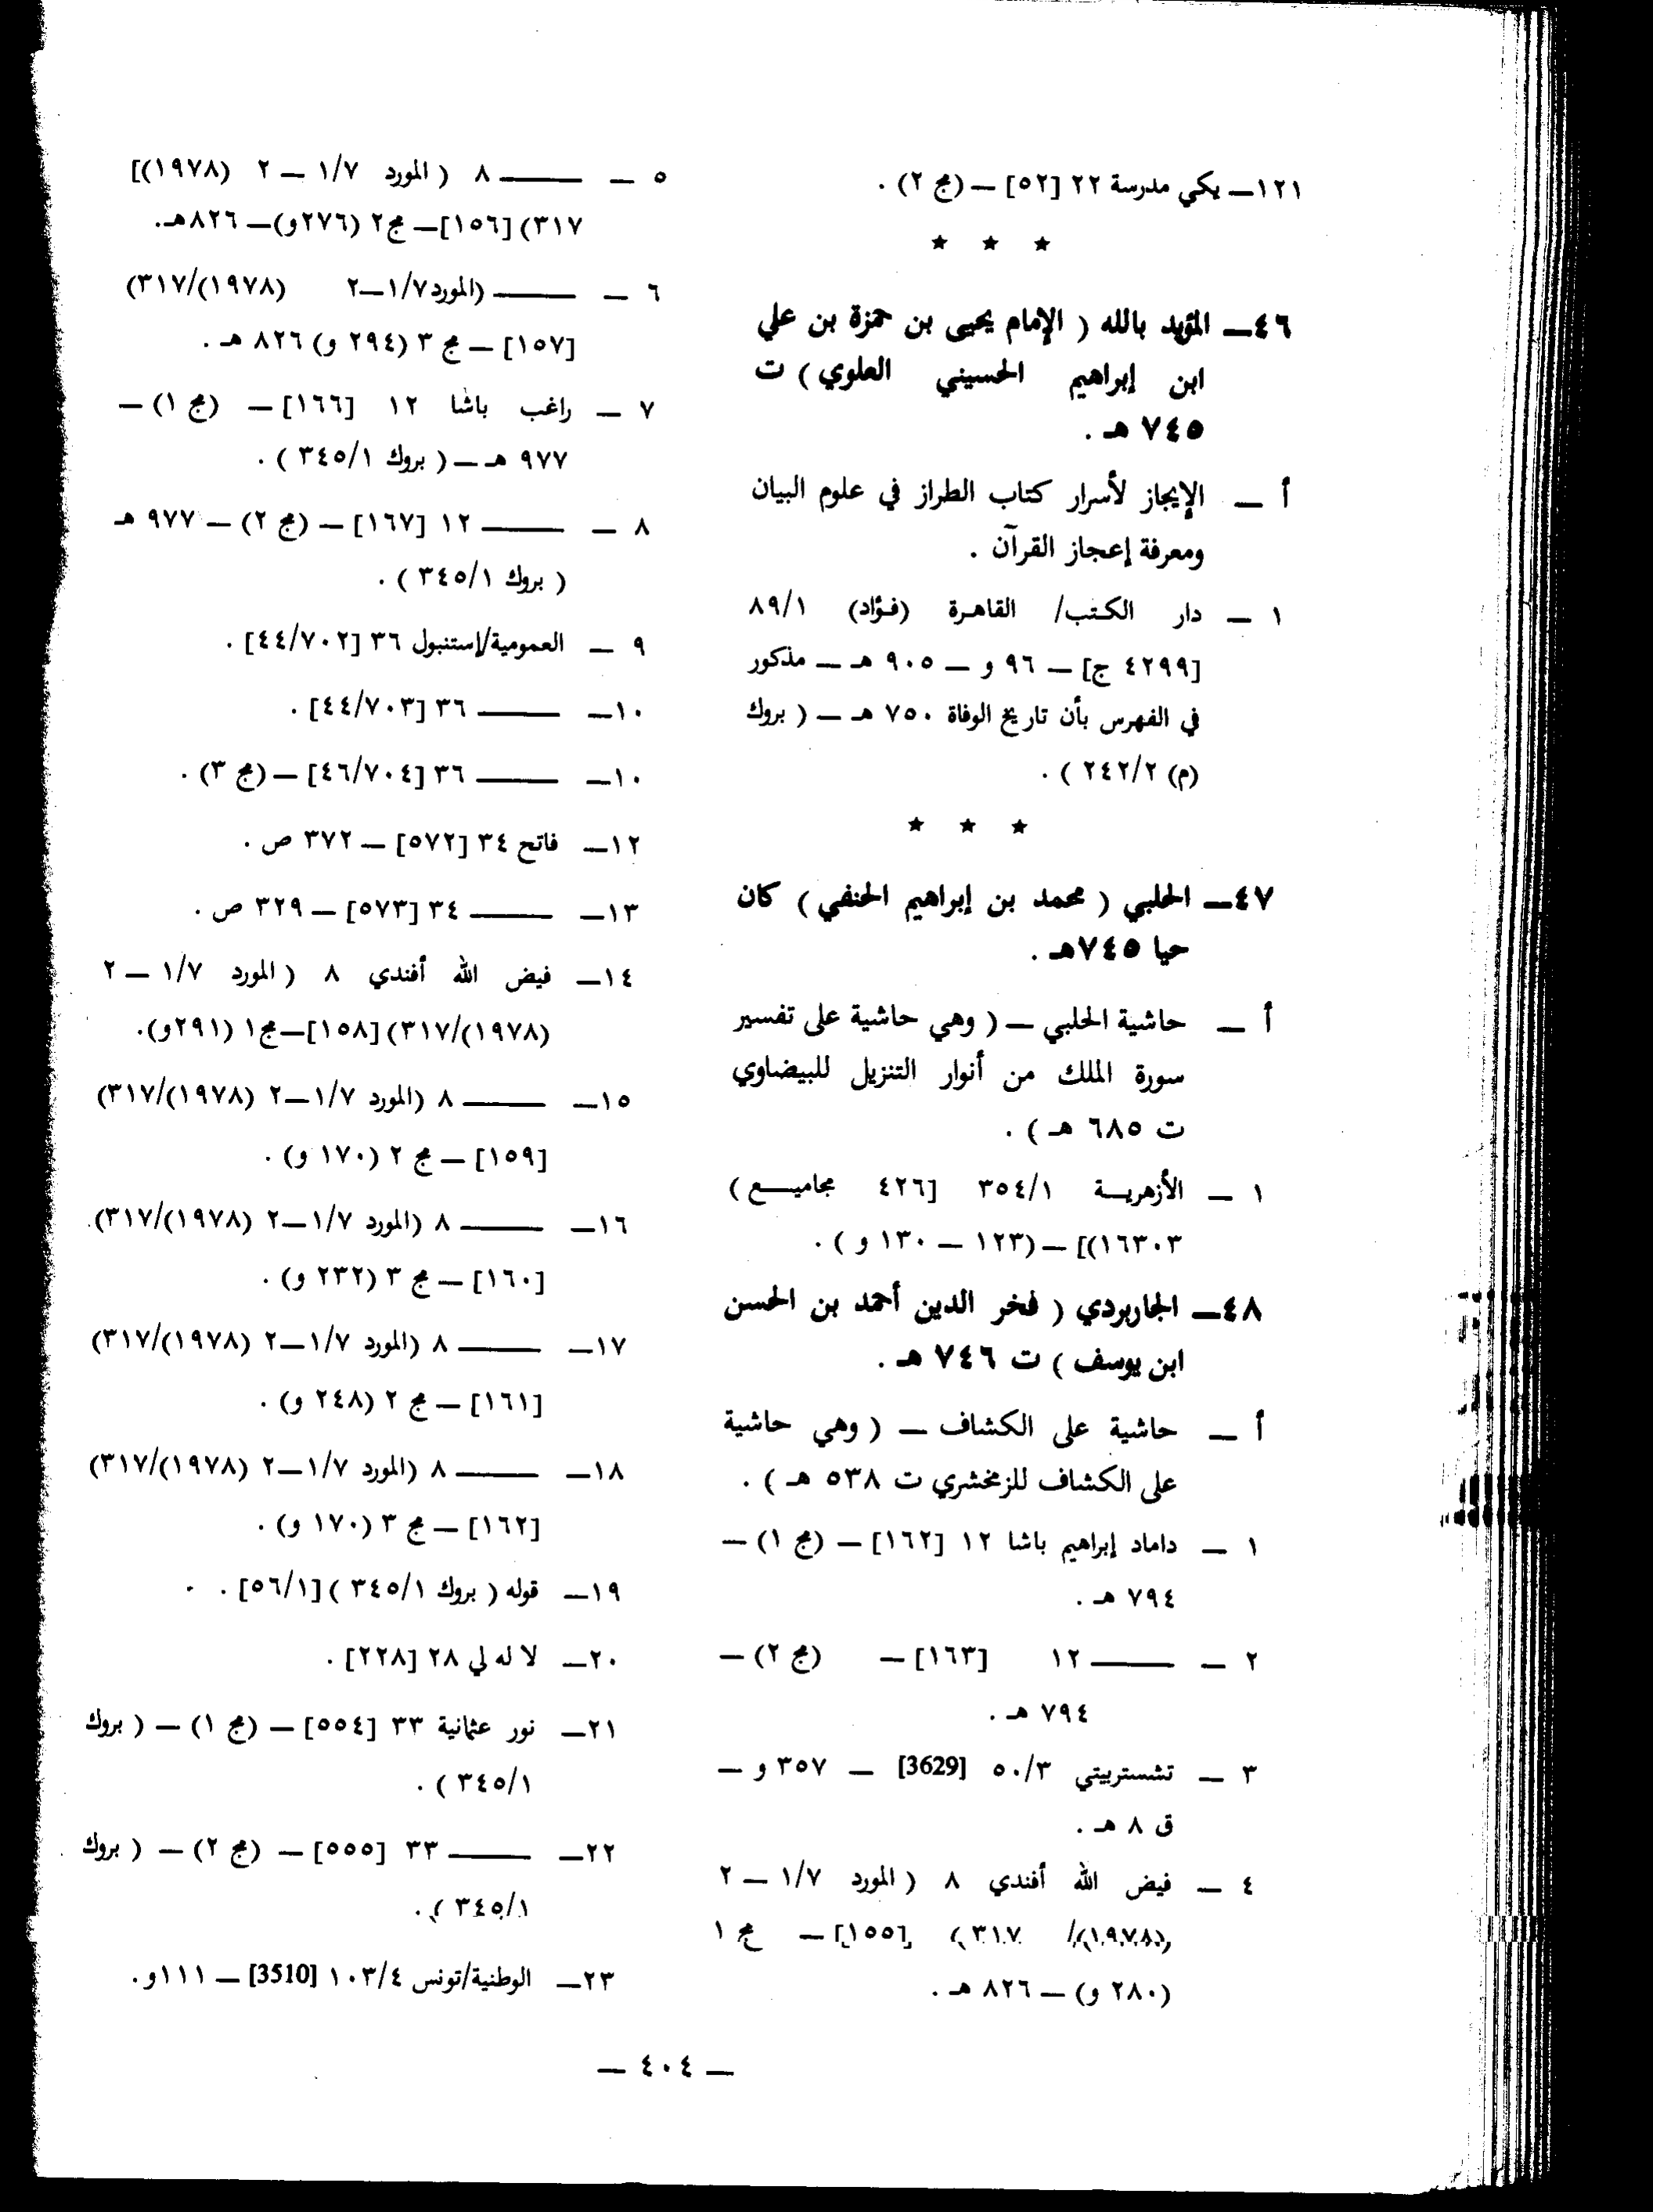 ١٢١ـ يكي مدرسة ٢٢ [٥٢] ــ (مج ٢) .
★ ★ ★
٤٦ـ المؤيد بالله ( الإمام يحيى بن حمزة بن علي
ابن إبراهيم الحسيني العلوي ) ت
٧٤٥ هـ .
أ ــ الإيجاز لأسرار كتاب الطراز في علوم البيان
ومعرفة إعجاز القرآن .
١ ــ دار الكتب/ القاهرة (فؤاد) ٨٩/١
[٤٢٩٩ ج] ــ ٩٦ و ــ ٩٠٥ هـ ــ مذكور
في الفهرس بأن تاريخ الوفاة ٧٥٠ هـ ــ ( بروك
(م) ٢٤٢/٢ ) .
★ ★ ★
٤٧ـ الحلبي ( محمد بن إبراهيم الحنفي ) كان
حيا ٧٤٥هـ .
أ ــ حاشية الحلبي ــ ( وهي حاشية على تفسير
سورة الملك من أنوار التنزيل للبيضاوي
ت ٦٨٥ هـ ) .
١ ــ الأزهريــة ٣٥٤/١ [٤٢٦ مجاميــع )
١٦٣٠٣)] ــ (١٢٣ ــ ١٣٠ و ) .
٤٨ـ الجاربردي ( فخر الدين أحمد بن الحسن
ابن يوسف ) ت ٧٤٦ هـ .
أ ــ حاشية على الكشاف ــ ( وهي حاشية
على الكشاف للزمخشري ت ٥٣٨ هـ ) .
١ ــ داماد إبراهيم باشا ١٢ [١٦٢] ــ (مج ١) ــ
٧٩٤ هـ .
٢ ــ ـــــــ ١٢ [١٦٣] ــ (مج ٢) ــ
٧٩٤ هـ .
٣ ــ تشستربيتي ٥٠/٣ [3629] ــ ٣٥٧ و ــ
ق ٨ هـ .
٤ ــ فيض الله أفندي ٨ ( المورد ١/٧ ــ ٢
(١٩٧٨)/ ٣١٧ ) [١٥٥] ــ مج ١
(٢٨٠ و) ــ ٨٢٦ هـ .
٥ ــ ـــــــ ٨ ( المورد ١/٧ ــ ٢ (١٩٧٨)]
٣١٧) [١٥٦] ــ مج٢ (٢٧٦و) ــ ٨٢٦هـ.
٦ ــ ـــــــ (المورد١/٧ــ٢ (١٩٧٨)/٣١٧)
[١٥٧] ــ مج ٣ (٢٩٤ و) ٨٢٦ هـ .
٧ ــ راغب باشا ١٢ [١٦٦] ــ (مج ١) ــ
٩٧٧ هـ ــ ( بروك ٣٤٥/١ ) .
٨ ــ ـــــــ ١٢ [١٦٧] ــ (مج ٢) ــ ٩٧٧ هـ
( بروك ٣٤٥/١ ) .
٩ ــ العمومية/إستنبول ٣٦ [٤٤/٧٠٢] .
١٠ـ ـــــــ ٣٦ [٤٤/٧٠٣] .
١٠ـ ـــــــ ٣٦ [٤٦/٧٠٤] ــ (مج ٣) .
١٢ـ فاتح ٣٤ [٥٧٢] ــ ٣٧٢ ص .
١٣ـ ـــــــ ٣٤ [٥٧٣] ــ ٣٢٩ ص .
١٤ـ فيض الله أفندي ٨ ( المورد ١/٧ ــ ٢
(١٩٧٨)/٣١٧) [١٥٨] ــ مج١ (٢٩١و).
١٥ـ ـــــــ ٨ (المورد ١/٧ــ٢ (١٩٧٨)/٣١٧)
[١٥٩] ــ مج ٢ (١٧٠ و) .
١٦ـ ـــــــ ٨ (المورد ١/٧ــ٢ (١٩٧٨)/٣١٧)
[١٦٠] ــ مج ٣ (٢٣٢ و) .
١٧ـ ـــــــ ٨ (المورد ١/٧ــ٢ (١٩٧٨)/٣١٧)
[١٦١] ــ مج ٢ (٢٤٨ و) .
١٨ـ ـــــــ ٨ (المورد ١/٧ــ٢ (١٩٧٨)/٣١٧)
[١٦٢] ــ مج ٣ (١٧٠ و) .
١٩ـ قوله ( بروك ٣٤٥/١ ) [٥٦/١] .
٢٠ـ لا له لي ٢٨ [٢٢٨] .
٢١ـ نور عثمانية ٣٣ [٥٥٤] ــ (مج ١) ــ ( بروك
٣٤٥/١ ) .
٢٢ـ ـــــــ ٣٣ [٥٥٥] ــ (مج ٢) ــ ( بروك
٣٤٥/١ ) .
٢٣ـ الوطنية/تونس ١٠٣/٤ [3510] ــ ١١١و.
ــ ٤٠٤ ــ